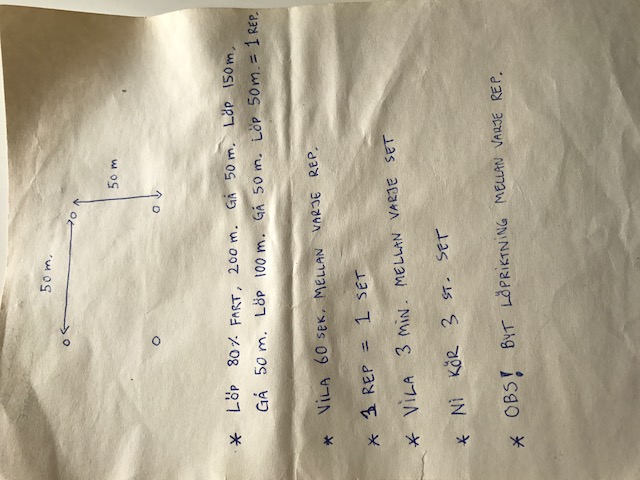 50 m.
50 m
* LÖP 80% FART, 200 m. GÅ 50 m. LÖP 150 m.
GÅ 50 m. LÖP 100 m. GÅ 50 m. LÖP 50 m. = 1 REP.
* VILA 60 SEK. MELLAN VARJE REP.
* 3 REP = 1 SET
* VILA 3 MIN. MELLAN VARJE SET
* NI KÖR 3 ST. SET
* OBS! BYT LÖPRIKTNING MELLAN VARJE REP.